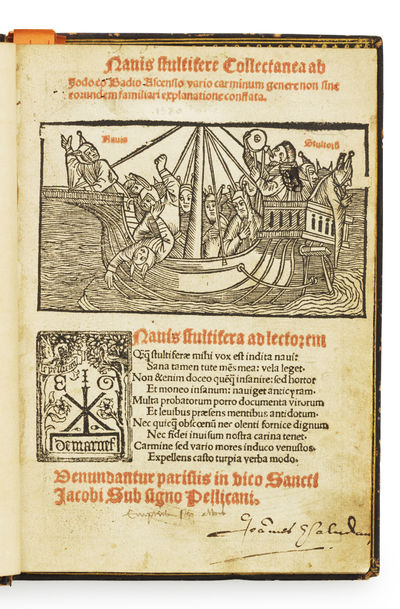 Nauis stultifere Collectanea ab
Jodoco Badio Ascensio vario carminum genere non sine
eorundem familiari explanatione conflata.
Nauis
Stultorū
E G
DE MARNEF
Nauis stultifera ad lectorem
Qq̄ stultiferæ mihi vox est indita naui:
Sana tamen tute mēs mea: vela leget.
Non & enim doceo quēq̄ insanire: sed hortor
Et moneo insanum: nauiget anticyram.
Multa probatorum porro documenta virorum
Et leuibus præsens mentibus antidotum.
Nec quicq̄ obscœnū nec olenti fornice dignum
Nec fidei inuisum nostra carina tenet.
Carmine sed vario mores induco venustos.
Expellens casto turpia verba modo.
Venundantur parisiis in vico Sancti
Jacobi Sub signo Pellicani.